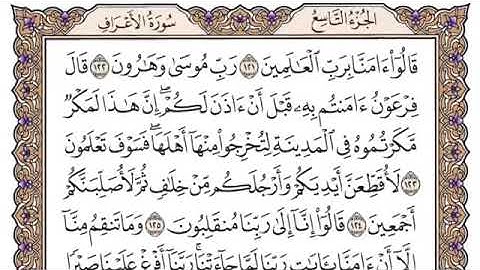 الجزء التاسع
سورة الأعراف
قَالُوٓا۟ ءَامَنَّا بِرَبِّ ٱلْعَٰلَمِينَ ١٢١ رَبِّ مُوسَىٰ وَهَٰرُونَ ١٢٢ قَالَ
فِرْعَوْنُ ءَامَنتُم بِهِۦ قَبْلَ أَنْ ءَاذَنَ لَكُمْ ۖ إِنَّ هَٰذَا لَمَكْرٌ
مَّكَرْتُمُوهُ فِى ٱلْمَدِينَةِ لِتُخْرِجُوا۟ مِنْهَآ أَهْلَهَا ۖ فَسَوْفَ تَعْلَمُونَ
١٢٣ لَأُقَطِّعَنَّ أَيْدِيَكُمْ وَأَرْجُلَكُم مِّنْ خِلَٰفٍ ثُمَّ لَأُصَلِّبَنَّكُمْ
أَجْمَعِينَ ١٢٤ قَالُوٓا۟ إِنَّآ إِلَىٰ رَبِّنَا مُنقَلِبُونَ ١٢٥ وَمَا تَنقِمُ مِنَّآ
إِلَّآ أَنْ ءَامَنَّا بِـَٔايَٰتِ رَبِّنَا لَمَّا جَآءَتْنَا ۚ رَبَّنَآ أَفْرِغْ عَلَيْنَا صَبْرًا